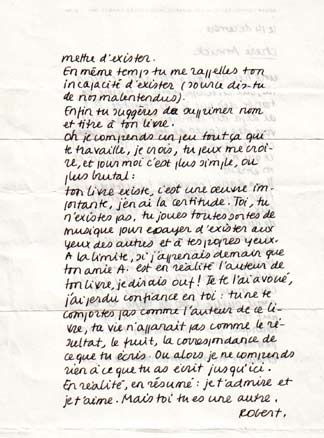 mettre d'exister.
En même temps tu me rappelles ton
incapacité d'exister (source dis-tu
de nos malentendus).
Enfin tu suggères de supprimer nom
et titre à ton livre.
Oh je comprends un peu tout ça qui
te travaille, je crois, tu peux me croi-
re, et pour moi c'est plus simple, ou
plus brutal:
ton livre existe, c'est une œuvre im-
portante, j'en ai la certitude. Toi, tu
n'existes pas, tu joues toutes sortes de
musique pour essayer d'exister aux
yeux des autres et à tes propres yeux.
A la limite, si j'apprenais demain que
ton amie A. est en réalité l'auteur de
ton livre, je dirais ouf! Je te l'ai avoué,
j'ai perdu confiance en toi: tu ne te
comportes pas comme l'auteur de ce li-
vre, ta vie n'apparait pas comme le ré-
sultat, le fruit, la correspondance de
ce que tu écris. Ou alors je ne comprends
rien à ce que tu as écrit jusqu'ici.
En réalité, en résumé: je t'admire et
je t'aime. Mais toi tu es une autre.
Robert.